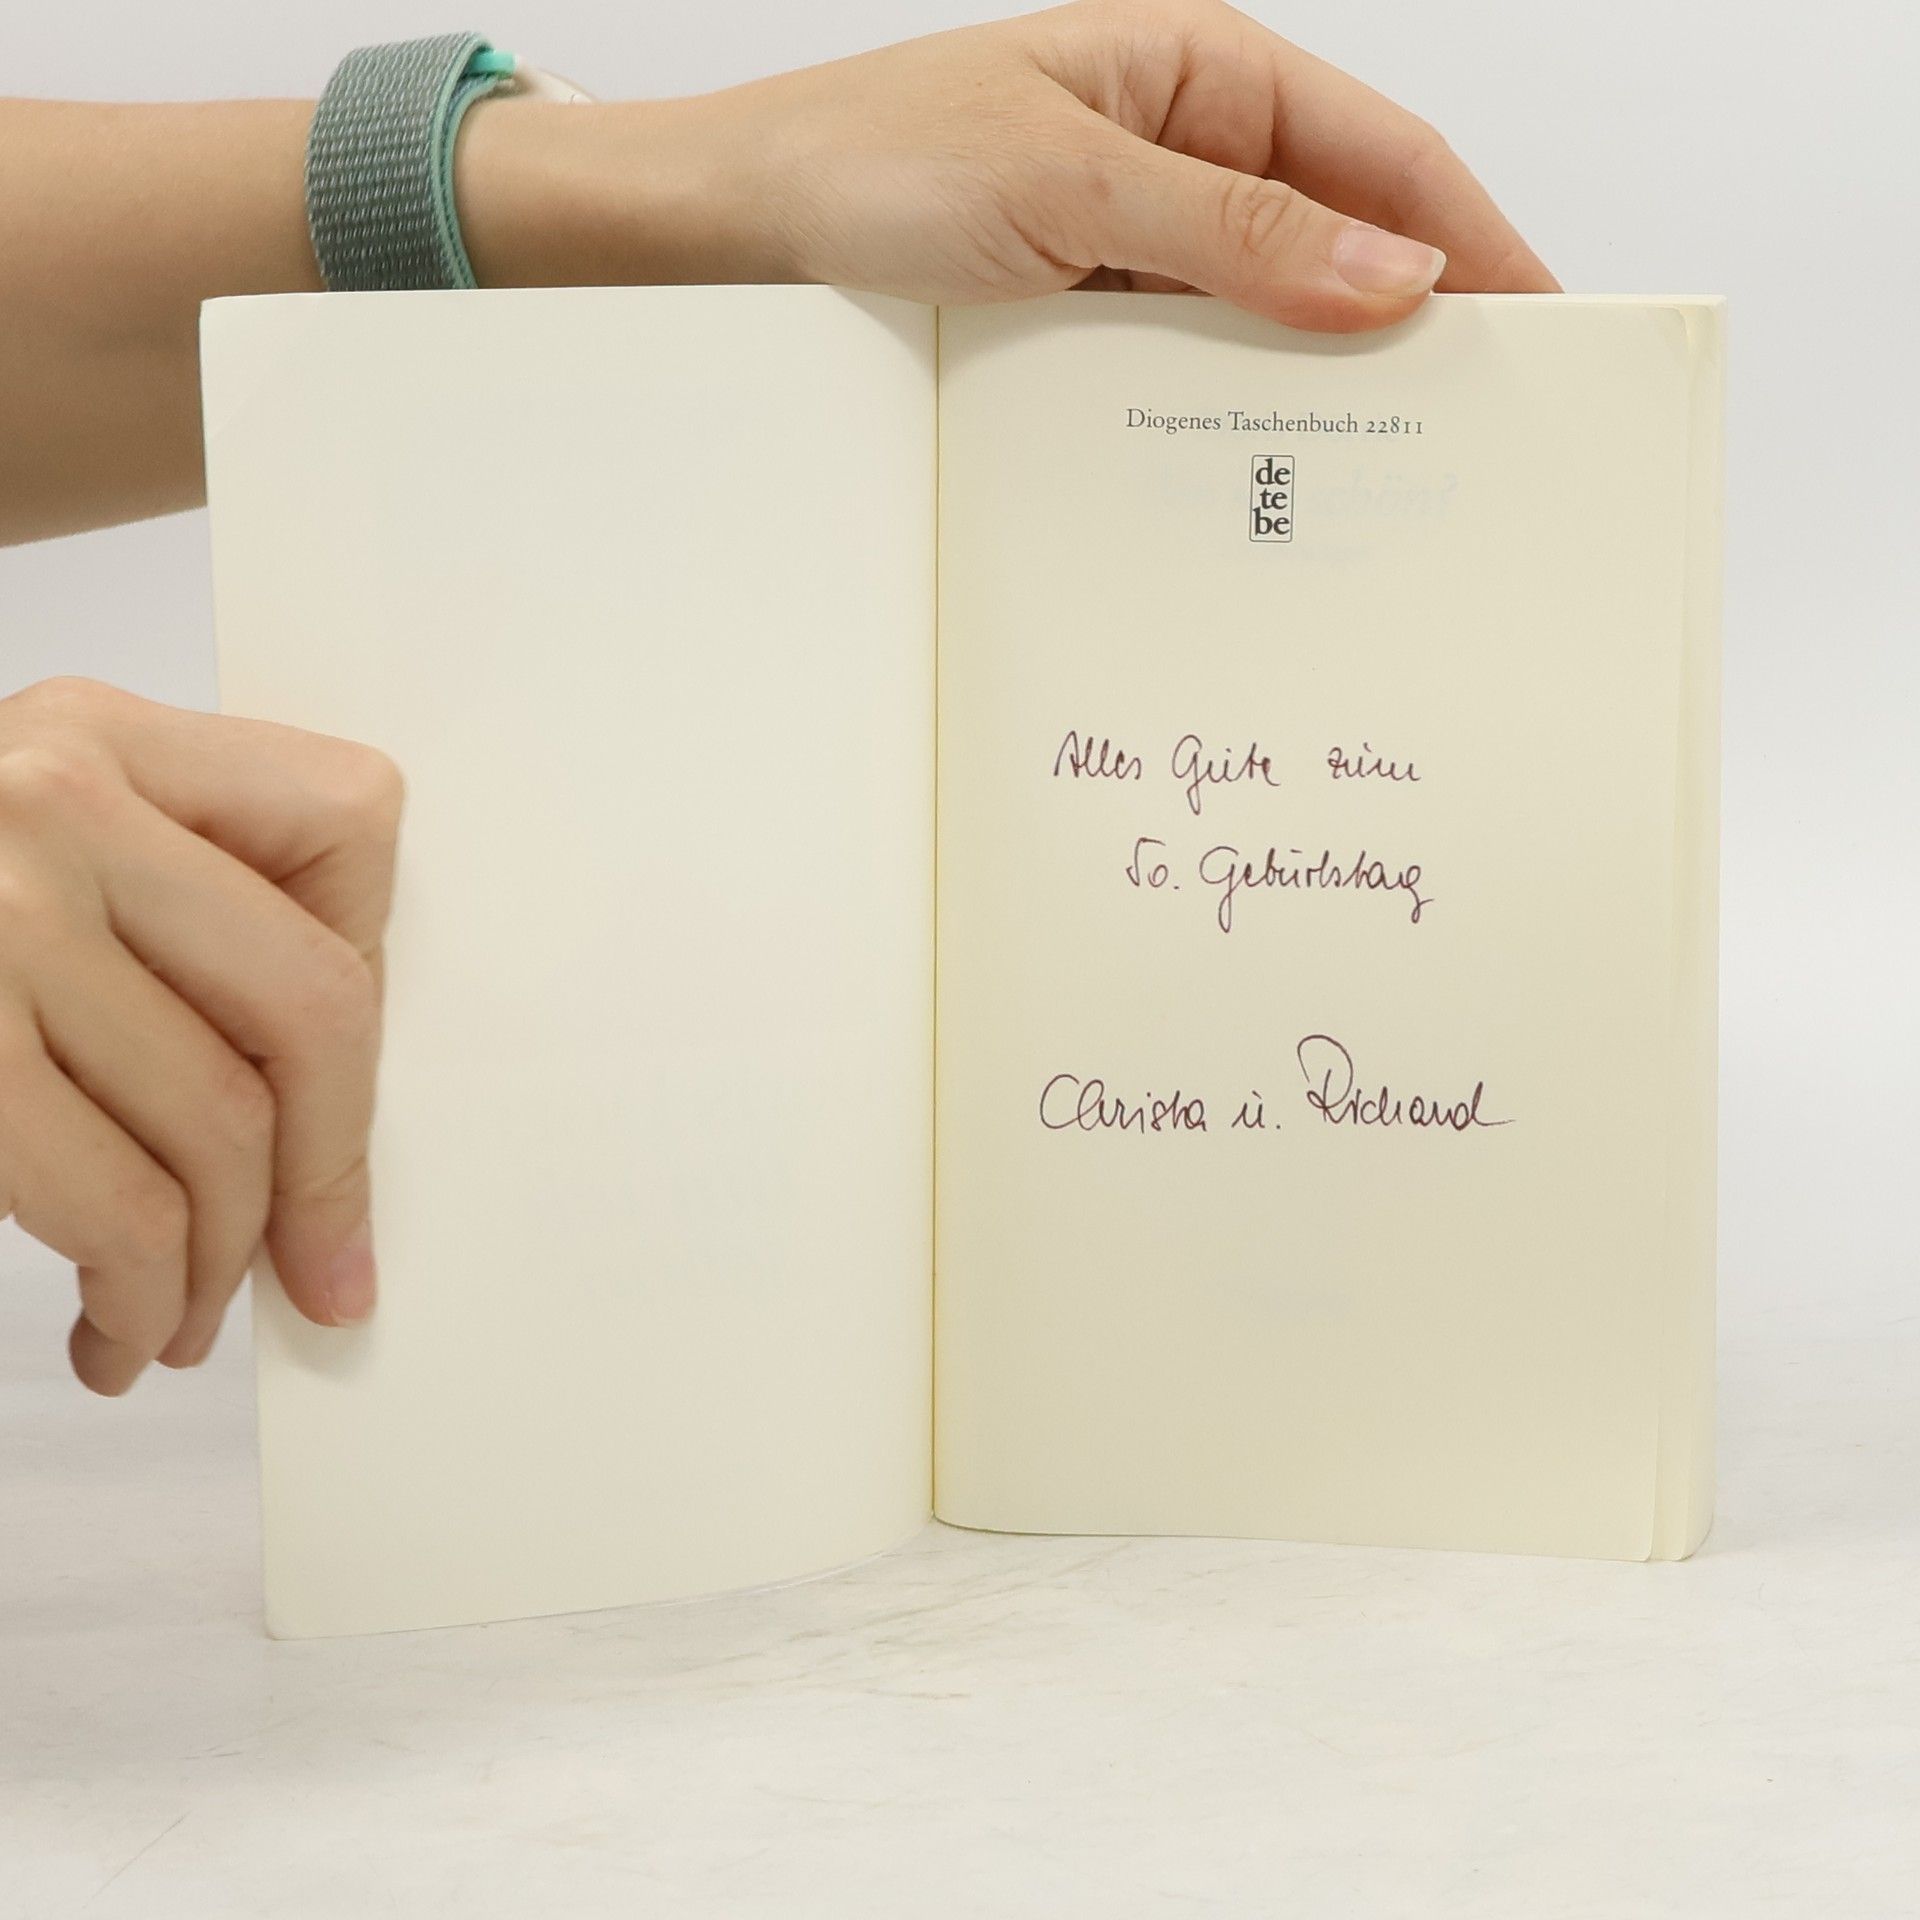 Diogenes Taschenbuch 22811
de
te
be
Alles Gute zum
50. Geburtstag
Christa u. Richard